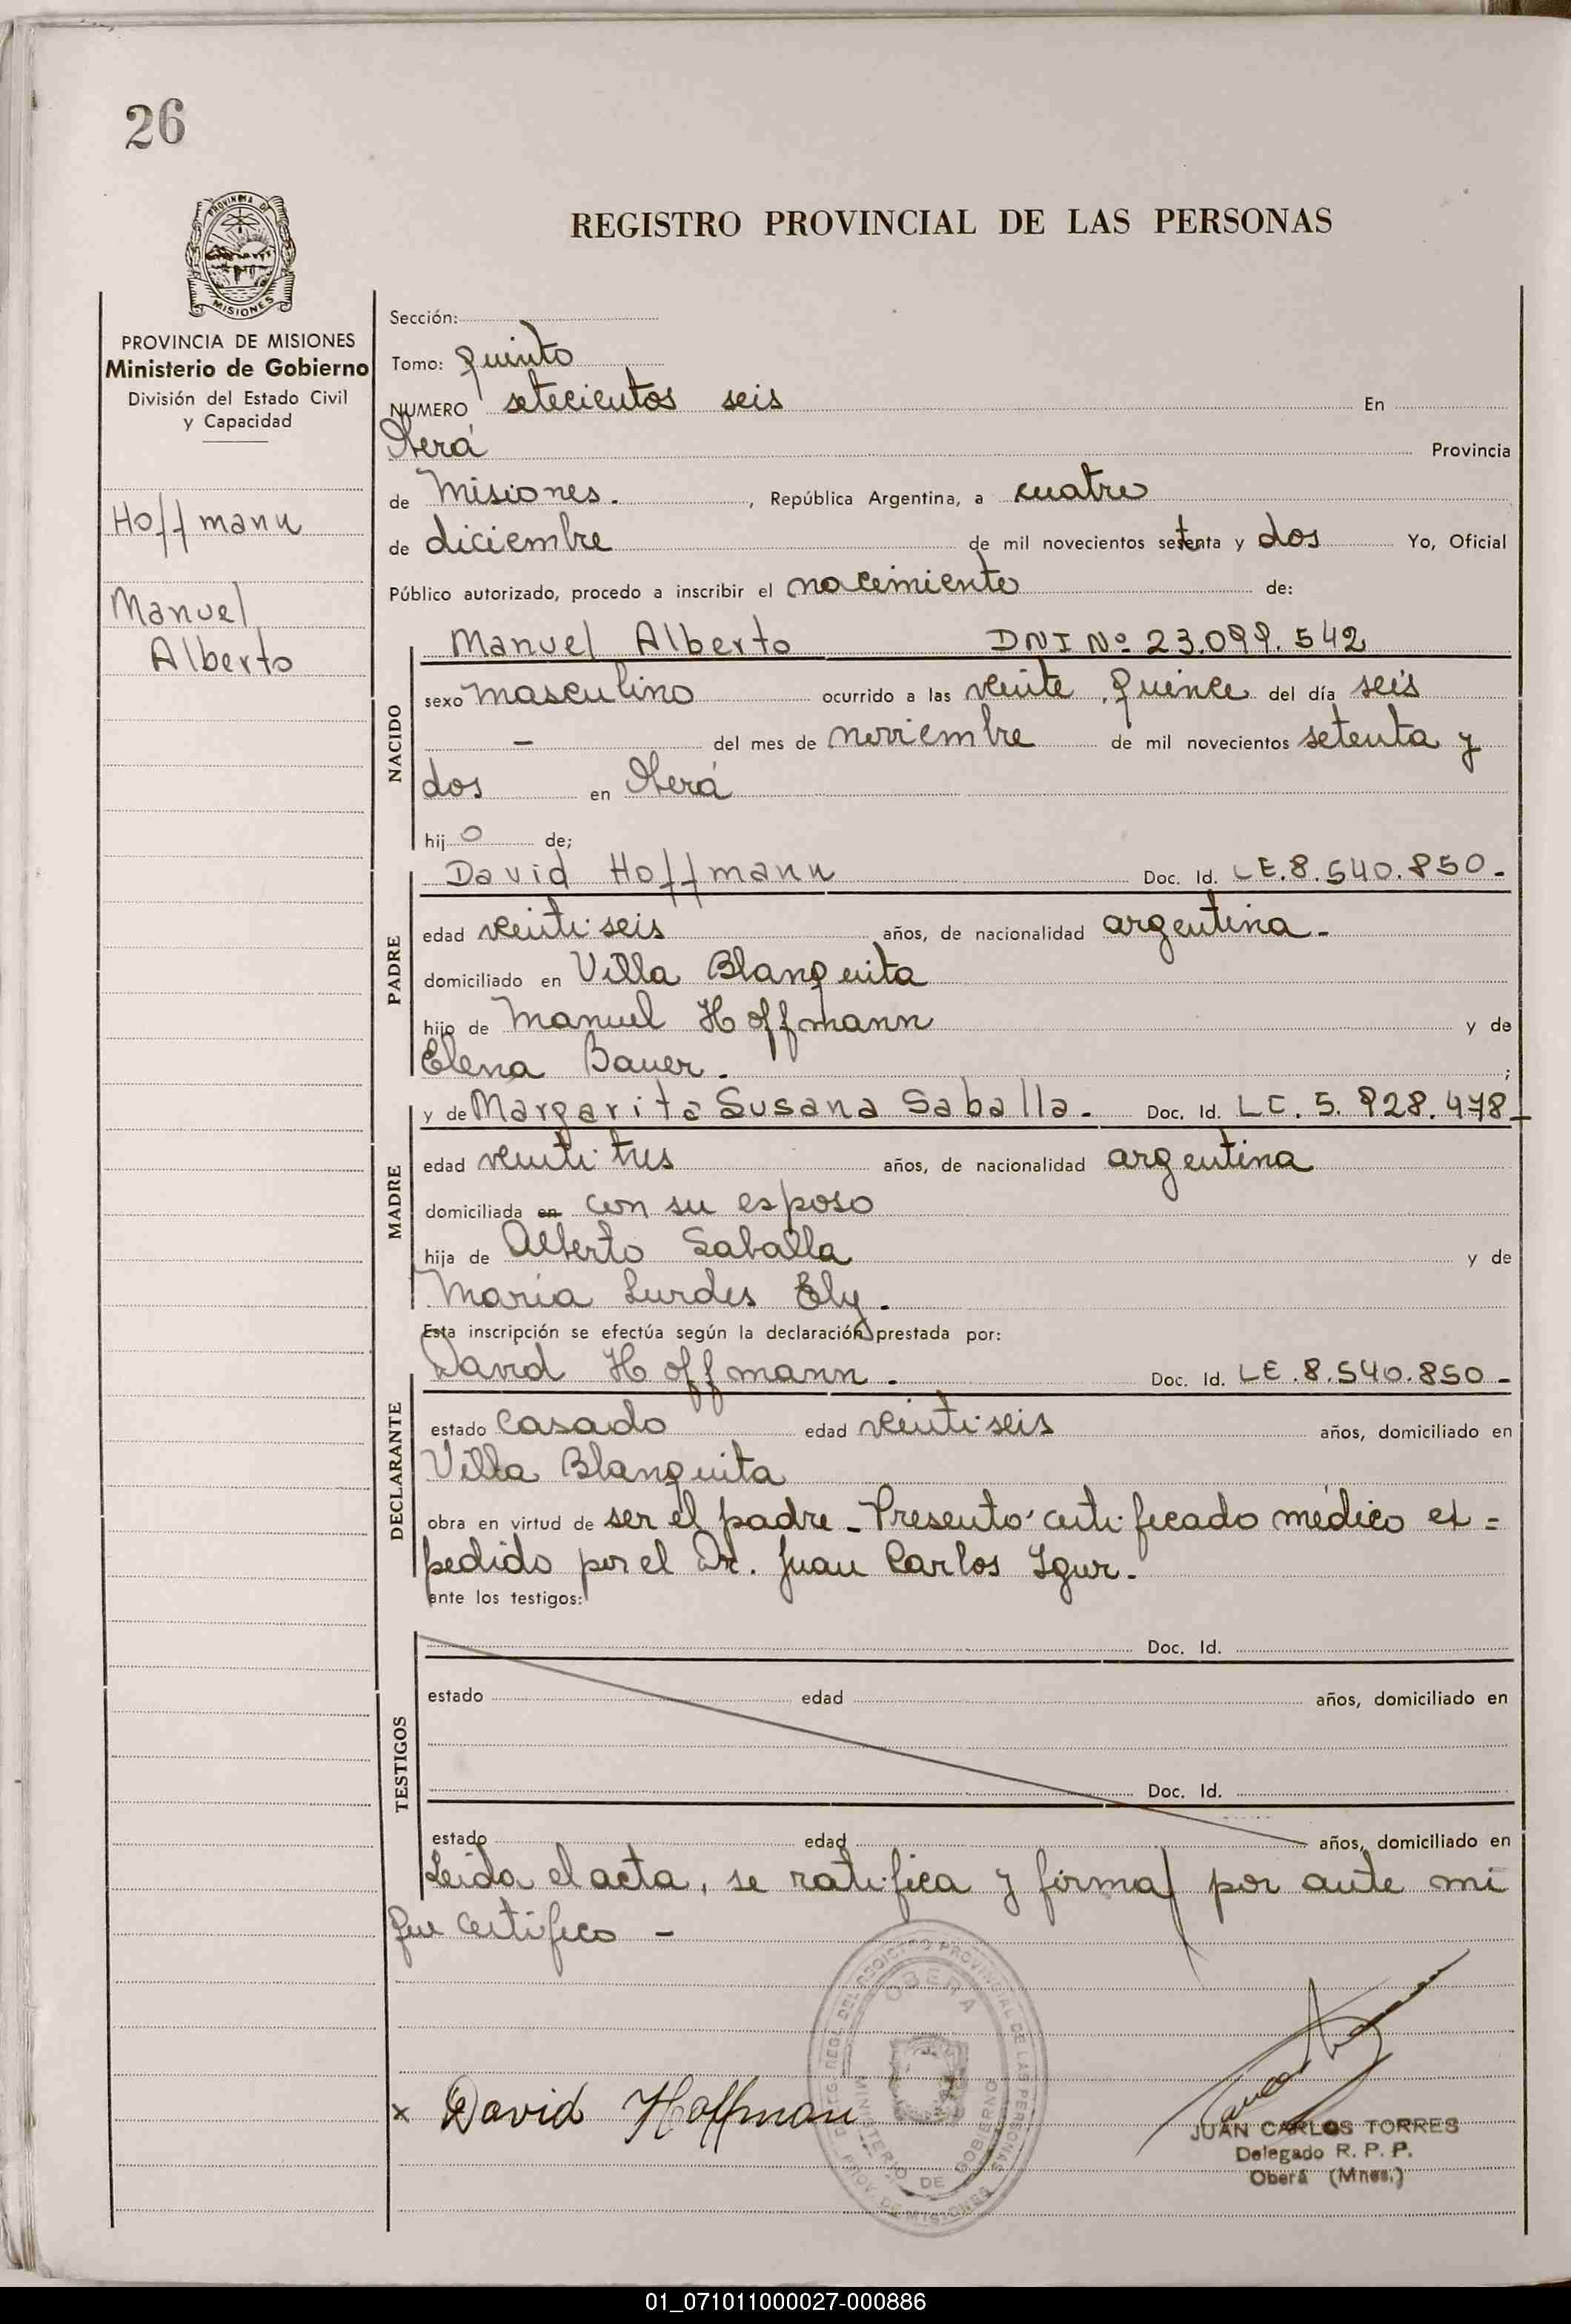 26
PROVINCIA DE
MISIONES
REGISTRO PROVINCIAL DE LAS PERSONAS
PROVINCIA DE MISIONES
Ministerio de Gobierno
División del Estado Civil
y Capacidad
Hoffmann
Manuel
Alberto
Sección:
Tomo: quinto
NUMERO setecientos seis En
Oberá Provincia
de Misiones. , República Argentina, a cuatro
de diciembre de mil novecientos setenta y dos Yo, Oficial
Público autorizado, procedo a inscribir el nacimiento de:
Manuel Alberto DNI Nº 23.099.542
NACIDO
sexo masculino ocurrido a las veinte quince del día seis
- del mes de noviembre de mil novecientos setenta y
dos en Oberá
hijo de;
David Hoffmann Doc. Id. LE.8.540.850-
PADRE
edad veintiseis años, de nacionalidad argentina-
domiciliado en Villa Blanquita
hijo de Manuel Hoffmann y de
Elena Bauer. ;
y de Margarita Susana Saballa. Doc. Id. LC. 5. 928. 478-
MADRE
edad veintitres años, de nacionalidad argentina
domiciliada en con su esposo
hija de Alberto Saballa y de
María Lurdes Ely.
Esta inscripción se efectúa según la declaración prestada por:
David Hoffmann. Doc. Id. LE.8.540.850-
DECLARANTE
estado casado edad veintiseis años, domiciliado en
Villa Blanquita
obra en virtud de ser el padre - Presentó certificado médico ex=
pedido por el Dr. Juan Carlos Igur.
ante los testigos:
Doc. Id.
TESTIGOS
estado edad años, domiciliado en
Doc. Id.
estado edad años, domiciliado en
Leída el acta, se ratifica y firma por ante mi
que certifico -
DELEG. REGL. DEL REGISTRO PROVINCIAL DE LAS PERSONAS
OBERA
MINISTERIO DE GOBIERNO
PROV. DE MISIONES
x David Hoffmann
JUAN CARLOS TORRES
Delegado R. P. P.
Oberá (Mnes.)
01_071011000027-000886